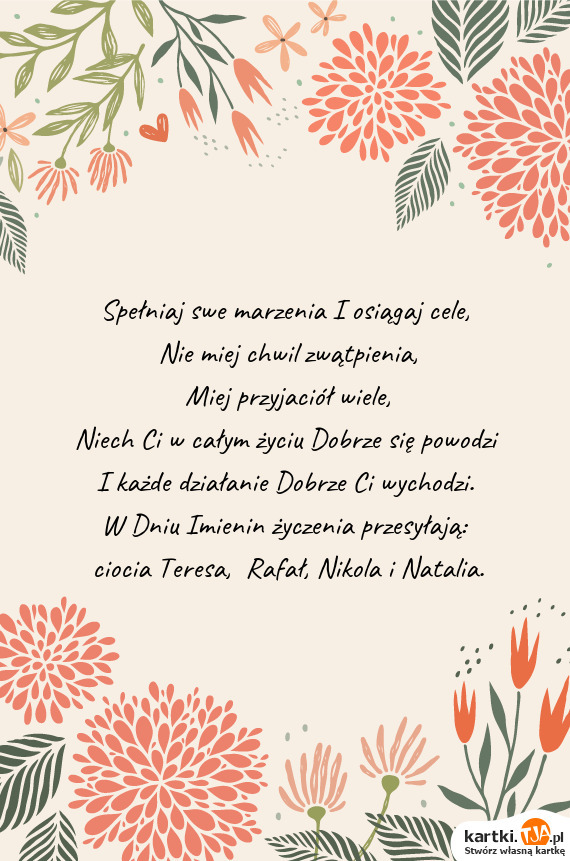 Spełniaj swe marzenia I osiągaj cele,
Nie miej chwil zwątpienia,
Miej przyjaciół wiele,
Niech Ci w całym życiu Dobrze się powodzi
I każde działanie Dobrze Ci wychodzi.
W Dniu Imienin życzenia przesyłają:
ciocia Teresa,  Rafał, Nikola i Natalia.
kartki.TJA.pl
Stwórz własną kartkę